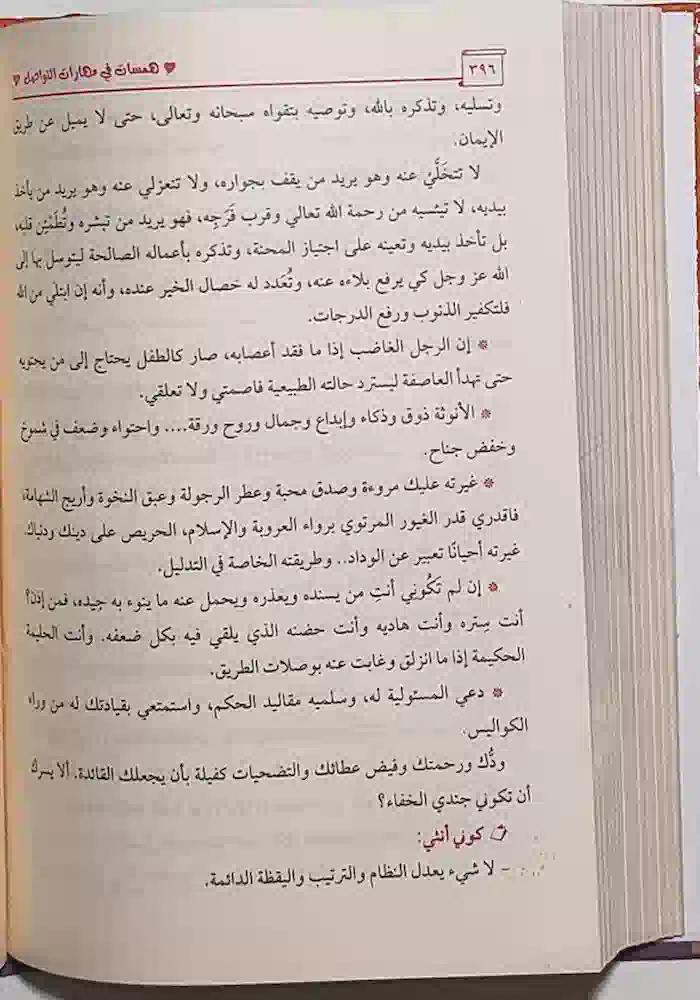 ٣٩٦
همسات في مهارات التواصل
وتسليه، وتذكره بالله، وتوصيه بتقواه سبحانه وتعالى، حتى لا يميل عن طريق
الإيمان.
لا تتخَلَّيْ عنه وهو يريد من يقف بجواره، ولا تنعزلي عنه وهو يريد من يأخذ
بيديه، لا تيئسيه من رحمة الله تعالي وقرب فَرَجِه، فهو يريد من تبشره وتُطَمْئِن قلبه،
بل تأخذ بيديه وتعينه على اجتياز المحنة، وتذكره بأعماله الصالحة ليتوسل بها إلى
الله عز وجل كي يرفع بلاءه عنه، وتُعَدد له خصال الخير عنده، وأنه إن ابتلي من الله
فلتكفير الذنوب ورفع الدرجات.
* إن الرجل الغاضب إذا ما فقد أعصابه، صار كالطفل يحتاج إلى من يحتويه
حتى تهدأ العاصفة ليسترد حالته الطبيعية فاصمتي ولا تعلقي.
* الأنوثة ذوق وذكاء وإبداع وجمال وروح ورقة.... واحتواء وضعف في شموخ
وخفض جناح.
* غيرته عليك مروءة وصدق محبة وعطر الرجولة وعبق النخوة وأريج الشهامة،
فاقدري قدر الغيور المرتوي برواء العروبة والإسلام، الحريص على دينك ودنياك.
غيرته أحيانًا تعبير عن الوداد.. وطريقته الخاصة في التدليل.
* إن لم تَكُوني أنتِ من يسنده ويعذره ويحمل عنه ما ينوء به جيده، فمن إذن؟
أنت سِتره وأنت هاديه وأنت حضنه الذي يلقي فيه بكل ضعفه. وأنت الحليمة
الحكيمة إذا ما انزلق وغابت عنه بوصلات الطريق.
* دعي المسئولية له، وسلميه مقاليد الحكم، واستمتعي بقيادتك له من وراء
الكواليس.
ودُّك ورحمتك وفيض عطائك والتضحيات كفيلة بأن يجعلك القائدة. ألا يسرك
أن تكوني جندي الخفاء؟
كوني أنثي:
- لا شيء يعدل النظام والترتيب واليقظة الدائمة.